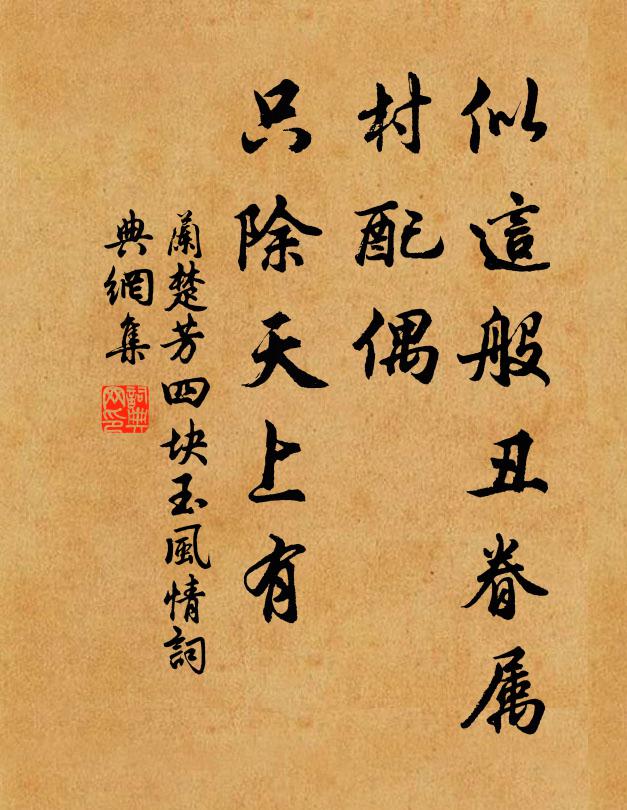 似這般丑眷属
村配偶
只除天上有
蘭楚芳四块玉風情詞
典網集
詞典网印